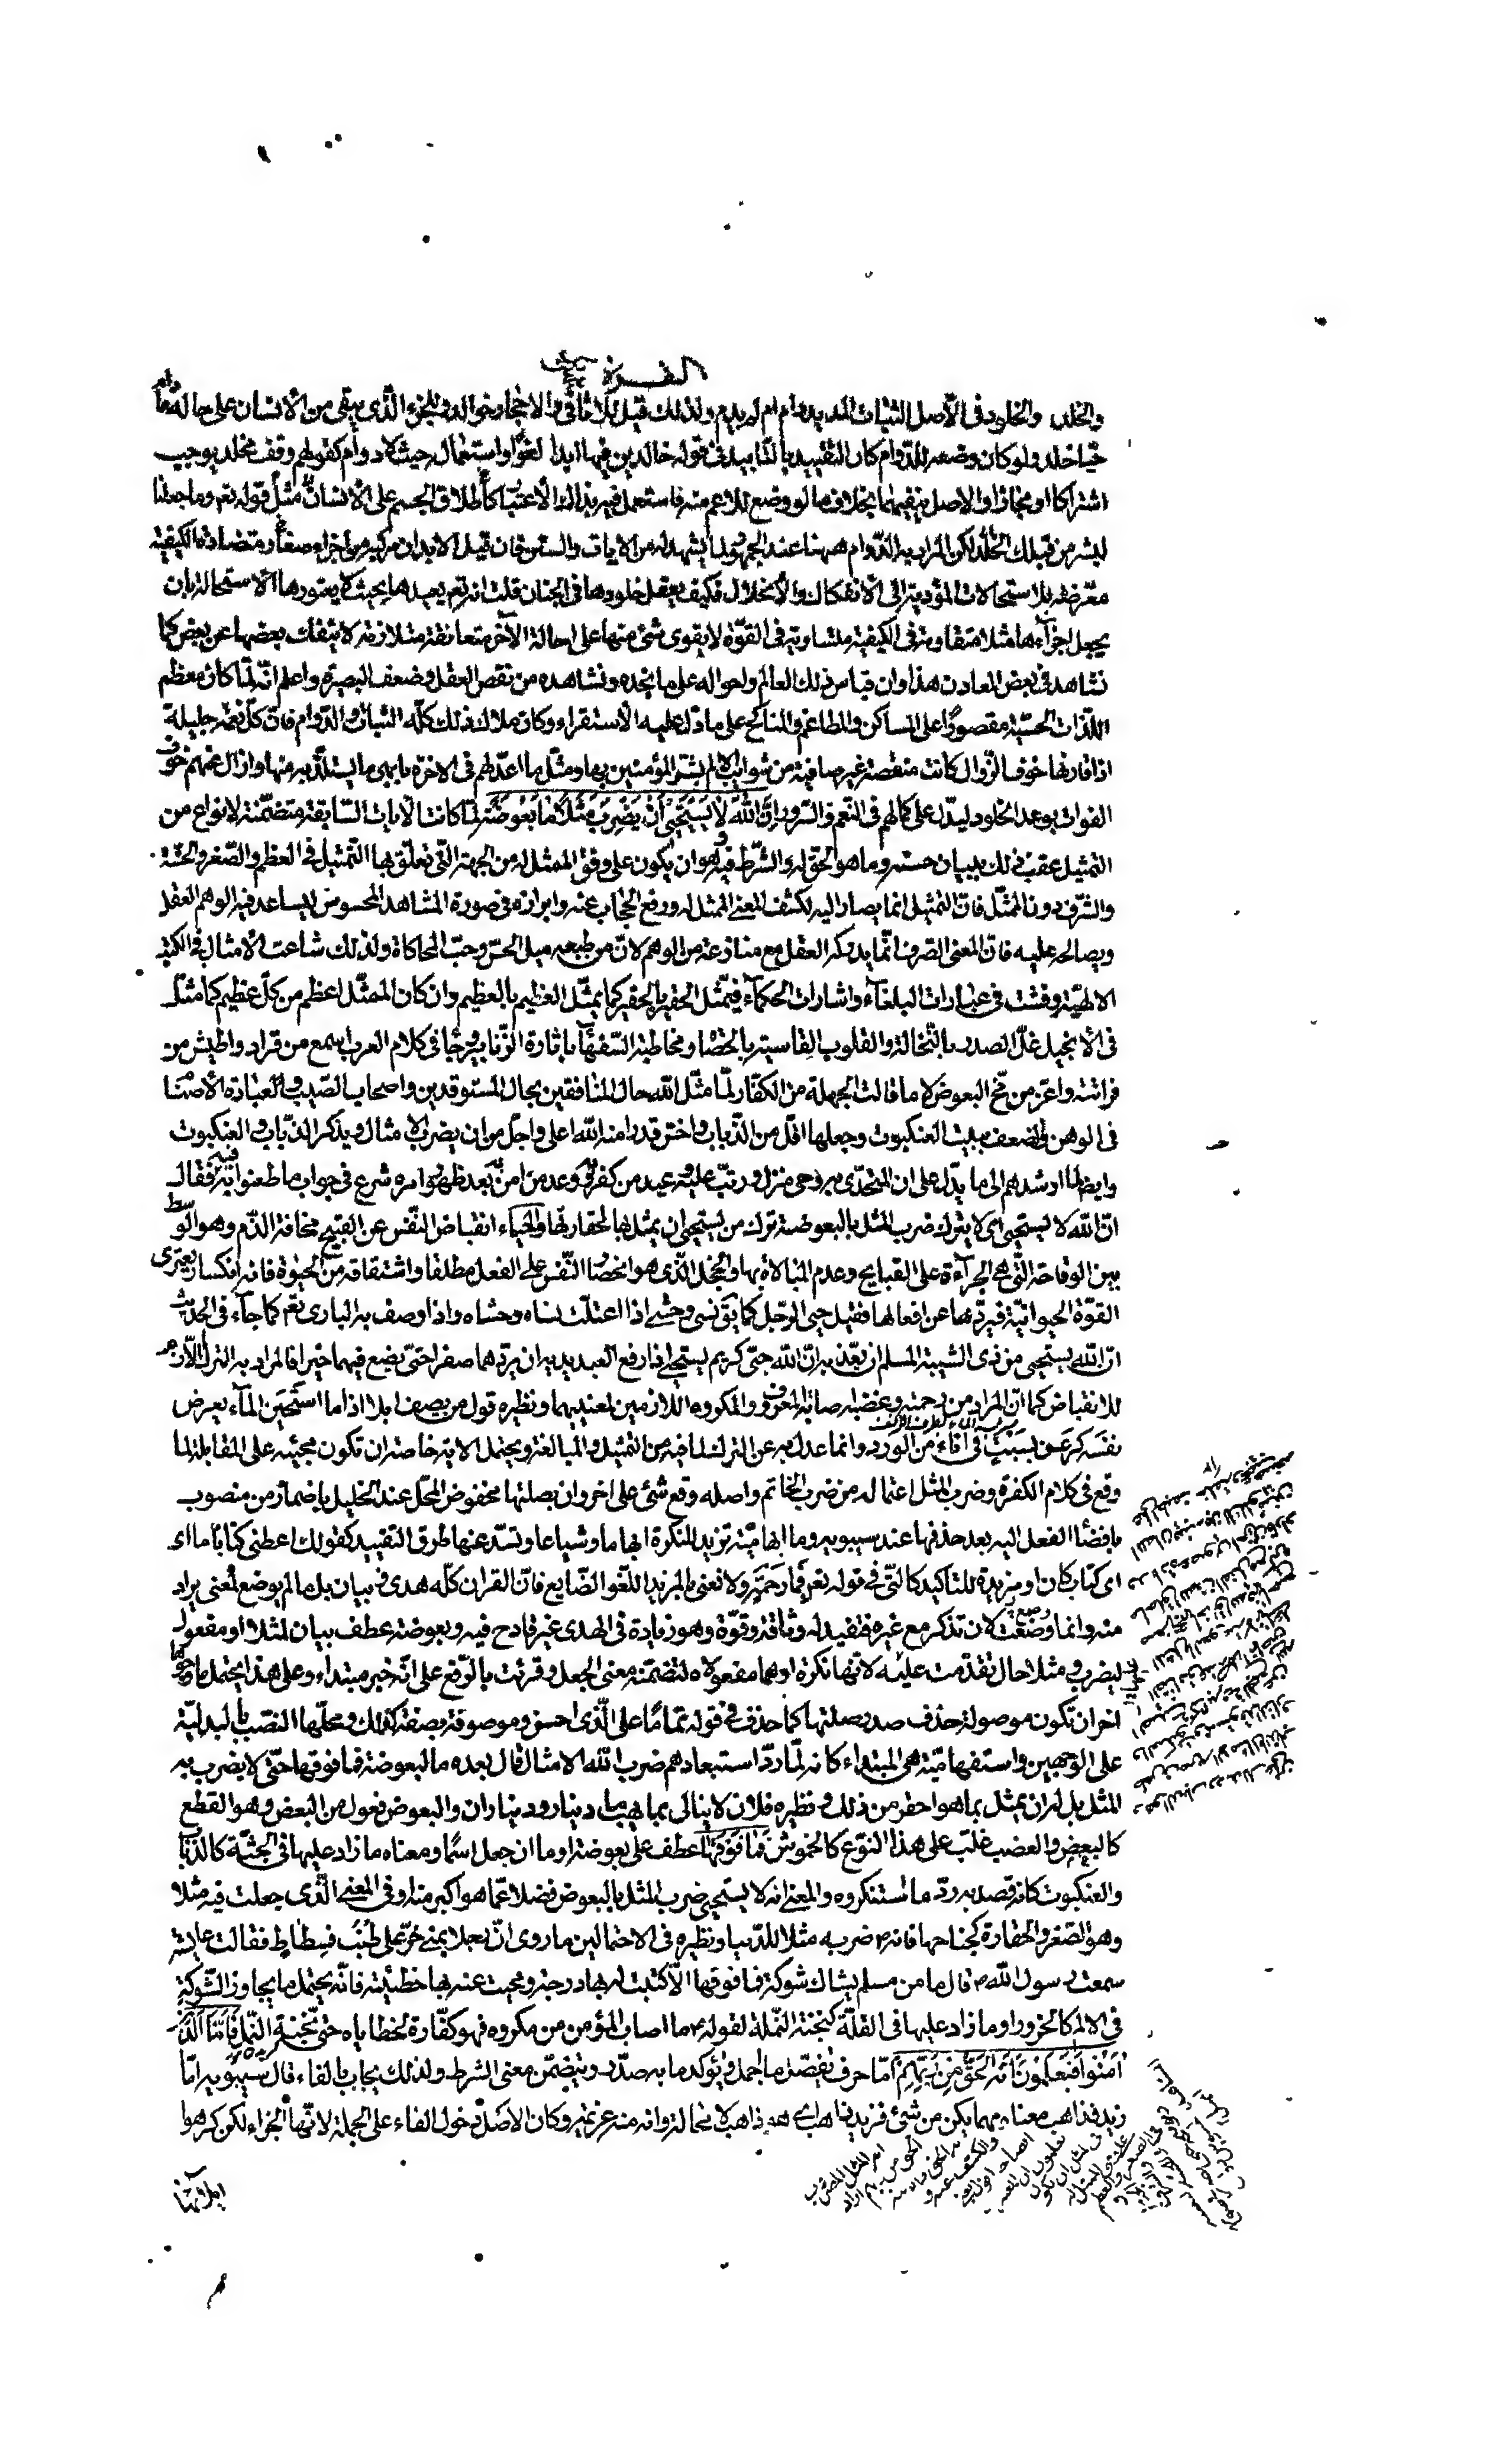 البقرة
والخلد والخلود فى الاصل الثبات المديد دام ام لم يدم ولذلك قيل للاثافى والاحجار خوالد وللجزء الذى يبقى من الانسان على حاله ما دام
حيا خلد ولو كان وضعه للدوام كان التقييد بالتابيد فى قوله خالدين فيها ابدا لغوا واستعماله حيث لا دوام كقولهم وقف مخلد يوجب
اشتراكا او مجازا والاصل ينفيهما بخلاف ما لو وضع للاعم منه فاستعمل فيه بذلك الاعتبار كاطلاق الجسم على الانسان مثل قوله تعم وما جعلنا
لبشر من قبلك الخلد لكن المراد به الدوام ههنا عند الجمهور لما يشهد له من الايات والسنن فان قيل الابدان مركبة من اجزاء متضادة الكيفية
معرضة للاستحالات المؤدية الى الانفكاك والانحلال فكيف يعقل خلودها فى الجنان قلت انه تعم يعيدها بحيث لا يعتورها الاستحالة بان
يجعل اجزاءها مثلا متقاومة فى الكيفية متساوية فى القوة لا يقوى شئ منها على احالة الآخر متعانقة متلازمة لا ينفك بعضها عن بعض كما
نشاهد فى بعض المعادن هذا وان قياس ذلك العالم واحواله على ما نجده ونشاهده من نقص العقل وضعف البصيرة واعلم انه لما كان معظم
اللذات الحسية مقصورا على المساكن والمطاعم والمناكح على ما دل عليه الاستقراء وكان ملاك ذلك كله الثبات والدوام فان كل نعمة جليلة
اذا قارنها خوف الزوال كانت منغصة غير صافية من شوائب الالم بشر المؤمنين بها ومثل ما اعد لهم فى الاخرة بابهى ما يستلذ به منها وازال عنهم خوف
الفوات بوعد الخلود ليدل على كمالهم فى التنعم والسرور ان الله لا يستحيى ان يضرب مثلا ما بعوضة لما كانت الايات السابقة متضمنة لانواع من
التمثيل عقب ذلك ببيان حسنه وما هو الحق له والشرط فيه وهو ان يكون على وفق الممثل له من الجهة التى تعلق بها التمثيل فى العظم والصغر والخسة
والشرف دون الممثل فان التمثيل انما يصار اليه لكشف المعنى الممثل له ورفع الحجاب عنه وابرازه فى صورة المشاهد المحسوس ليساعد فيه الوهم العقل
ويصالحه عليه فان المعنى الصرف انما يدركه العقل مع منازعة من الوهم لان من طبعه ميل الحس وحب المحاكاة ولذلك شاعت الامثال فى الكتب
الالهية وفشت فى عبارات البلغاء واشارات الحكماء فيمثل الحقير بالحقير كما يمثل العظيم بالعظيم وان كان الممثل اعظم من كل عظيم كما مثل
فى الانجيل غل الصدر بالنخالة والقلوب القاسية بالحصاة ومخاطبة السفهاء باثارة الزنابير وجاء فى كلام العرب اسمع من قراد واطيش من
فراشة واعز من مخ البعوض لا ما قالت الجهلة من الكفار لما مثل الله حال المنافقين بحال المستوقدين واصحاب الصيب والعبادة الاصنام
فى الوهن والضعف ببيت العنكبوت وجعلها اقل من الذباب واخس قدرا منه الله اعلى واجل من ان يضرب الامثال ويذكر الذباب والعنكبوت
وايضا لما ارشدهم الى ما يدل على ان المتحدى به وحى منزل ورتب عليه وعيد من كفر به ووعد من امن به بعد ظهور امره شرع فى جواب ما طعنوا به فيه فقال
ان الله لا يستحيى اى لا يترك ضرب المثل بالبعوضة ترك من يستحيى ان يمثل بها لحقارتها والحياء انقباض النفس عن القبيح مخافة الذم وهو الوسط
بين الوقاحة التى هى الجراءة على القبايح وعدم المبالاة بها والخجل الذى هو انحصار النفس على الفعل مطلقا واشتقاقه من الحيوة فانه انكسار يعترى
القوة الحيوانية فيردها عن افعالها فقيل حيى الرجل كما يق نسى وحشى اذا اعتلت نساه وحشاه واذا وصف به البارى تعم كما جاء فى الحديث
ان الله يستحيى من ذى الشيبة المسلم ان يعذبه ان الله حيى كريم يستحيى اذا رفع العبد يديه ان يردهما صفرا حتى يضع فيهما خيرا فالمراد به الترك اللازم
للانقباض كما ان المراد من رحمته وغضبه اصابة المعروف والمكروه اللازمين لمعنييهما ونظيره قول من يصف ابلا اذا ما استحين الماء يعرض
نفسه كرعن بسبت فى اناء من الورد وانما عدل به عن الترك لما فيه من التمثيل والمبالغة ويحتمل الاية خاصة ان تكون مجيئه على المقابلة لما
وقع فى كلام الكفرة وضرب المثل اعتماله من ضرب الخاتم واصله وقع شئ على اخر وان بصلتها مخفوض المحل عند الخليل باضمار من منصوب
بافضاء الفعل اليه بعد حذفها عند سيبويه وما ابهامية تزيد النكرة ابهاما وشياعا وتسد عنها طرق التقييد كقولك اعطنى كتابا ما اى
اى كتاب كان او مزيدة للتاكيد كالتى فى قوله تعم فبما رحمة ولا نعنى بالمزيد اللغو الضايع فان القران كله هدى وبيان بل ما لم يوضع لمعنى يراد
منه وانما وضعت لان تذكر مع غيره فتفيد له وثاقة وقوة وهو زيادة فى الهدى غير قادح فيه وبعوضة عطف بيان لمثلا او مفعول
ليضرب ومثلا حال تقدمت عليه لانها نكرة او هما مفعولاه لتضمنه معنى الجعل وقرئت بالرفع على انه خبر مبتداء وعلى هذا يحتمل ما وجوها
اخر ان تكون موصولة حذف صدر صلتها كما حذف فى قوله تماما على الذى احسن وموصوفة بصفة كذلك ومحلها النصب بالبدلية
على الوجهين واستفهامية هى المبتداء كانه لما رد استبعادهم ضرب الله الامثال قال بعده ما البعوضة فما فوقها حتى لا يضرب به
المثل بل له ان يمثل بما هو احقر من ذلك ونظيره فلان لا يبالى بما يهب ما دينار ودينا‌ران والبعوض فعول من البعض وهو القطع
كالبعض والعضب غلب على هذا النوع كالخموش فما فوقها عطف على بعوضة او ما ان جعل اسما ومعناه ما زاد عليها فى الجثة كالذباب
والعنكبوت كانه قصد به رد ما استنكروه والمعنى انه لا يستحيى ضرب المثل بالبعوض فضلا عما هو اكبر منه او فى المعنى الذى جعلت فيه مثلا
وهو الصغر والحقارة كجناحها فانه م ضربه مثلا للدنيا ونظيره فى الاحتمالين ما روى ان رجلا بمنى خر على طنب فسطاط فقالت عايشة
سمعت رسول الله م قال ما من مسلم يشاك شوكة فما فوقها الا كتبت له بها درجة ومحيت عنه بها خطيئة فانه يحتمل ما يجاوز الشوكة
فى الالم كالخرور او ما زاد عليها فى القلة كنخبة النملة لقوله م ما اصاب المؤمن من مكروه فهو كفارة لخطاياه حتى نخبة النملة فاما الذين
امنوا فيعلمون انه الحق من ربهم اما حرف تفصل ما اجمل ويؤكد ما به صدر ويتضمن معنى الشرط ولذلك يجاب بالفاء قال سيبويه اما
زيد فذاهب معناه مهما يكن من شئ فزيد ذاهب اى هو ذاهب لا محالة وانه منه عزيمة وكان الاصل دخول الفاء على الجملة لانها الجزاء لكن كرهوا
ايلائها